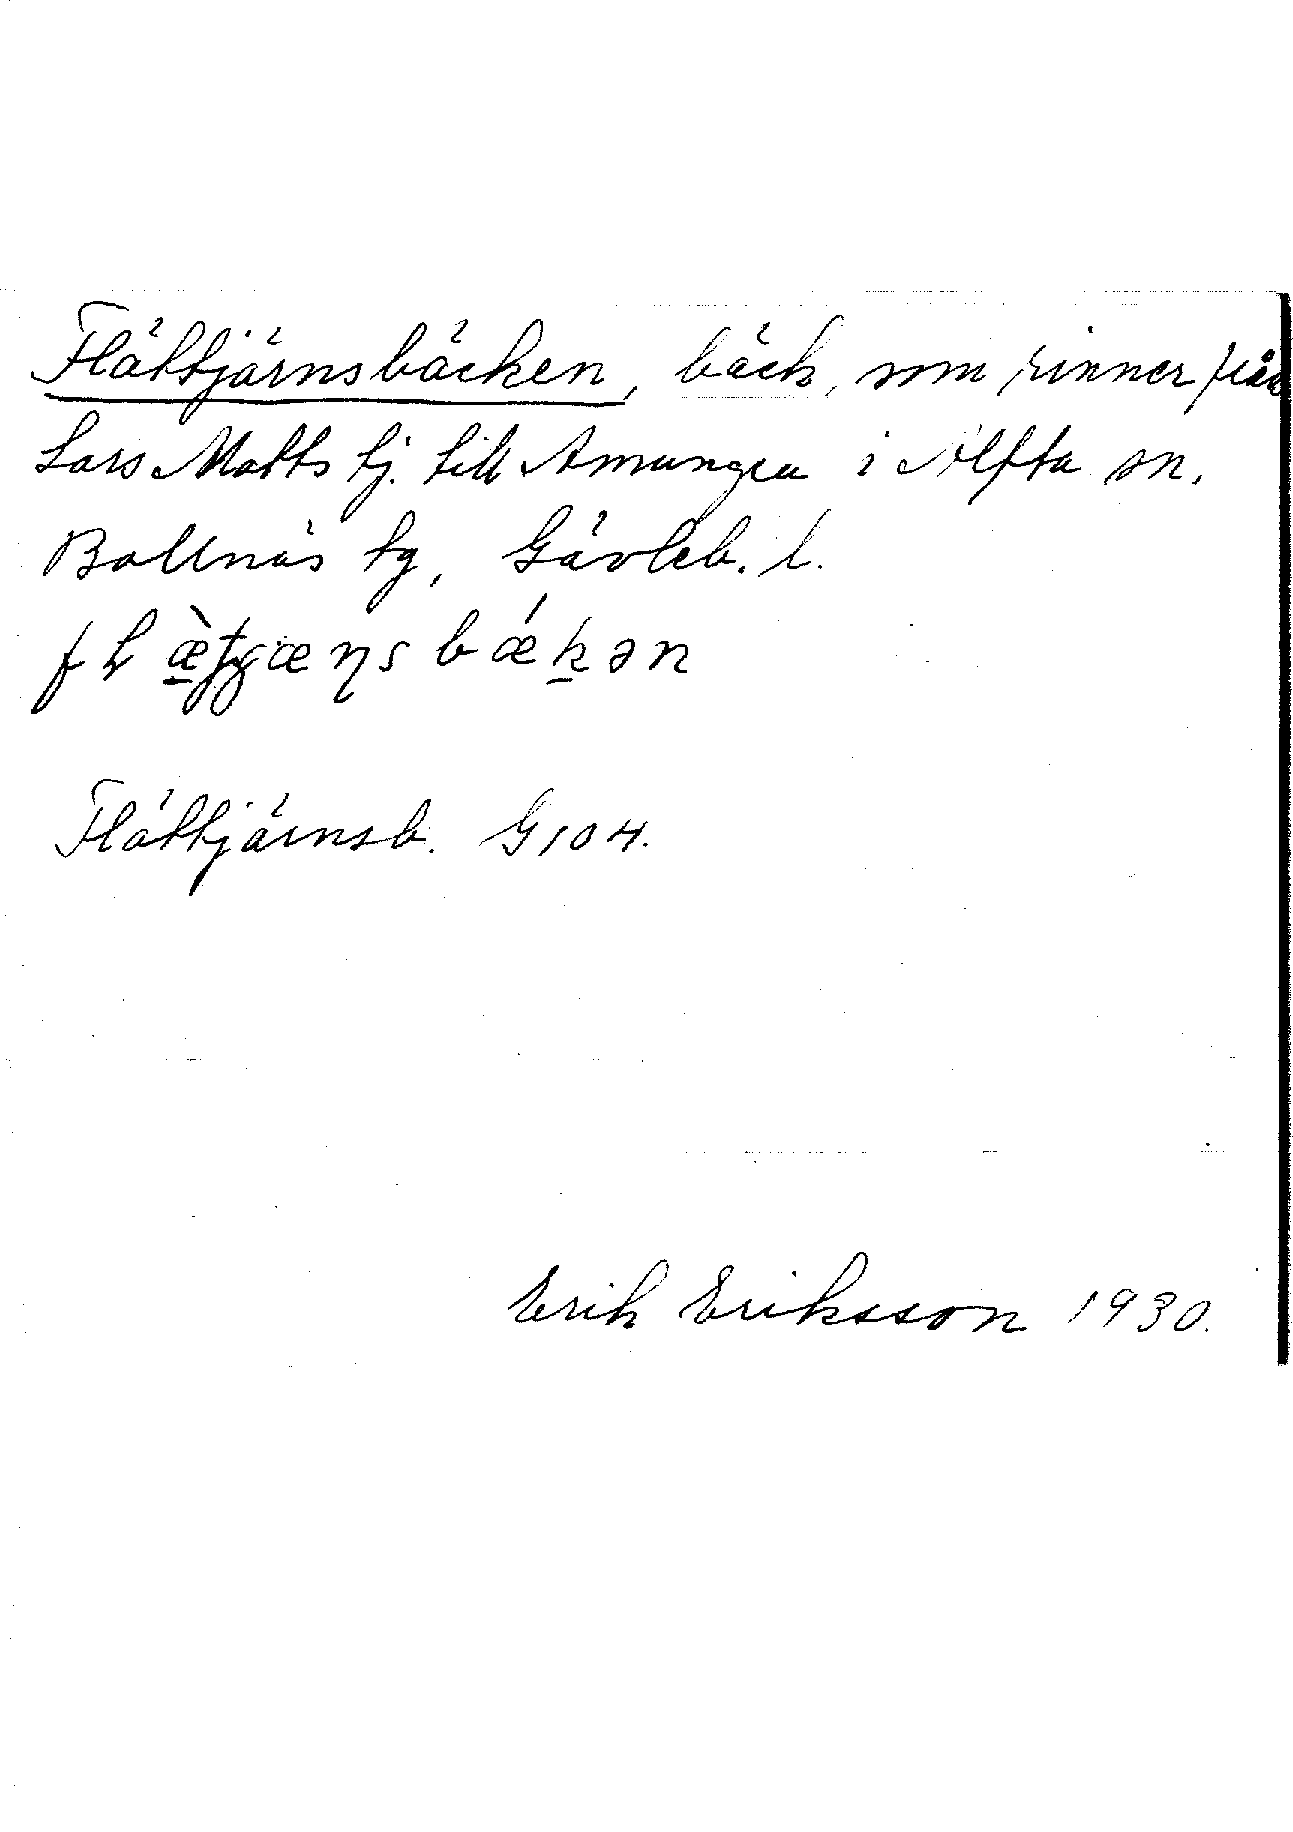 Flättjärnsbäcken, bäck, som rinner från
Lars Matts tj. till Amungen i Alfta sn.
Bollnäs tg, Gävleb. l.
Flättjärnsb. G 104.
Erik Eriksson 1930.